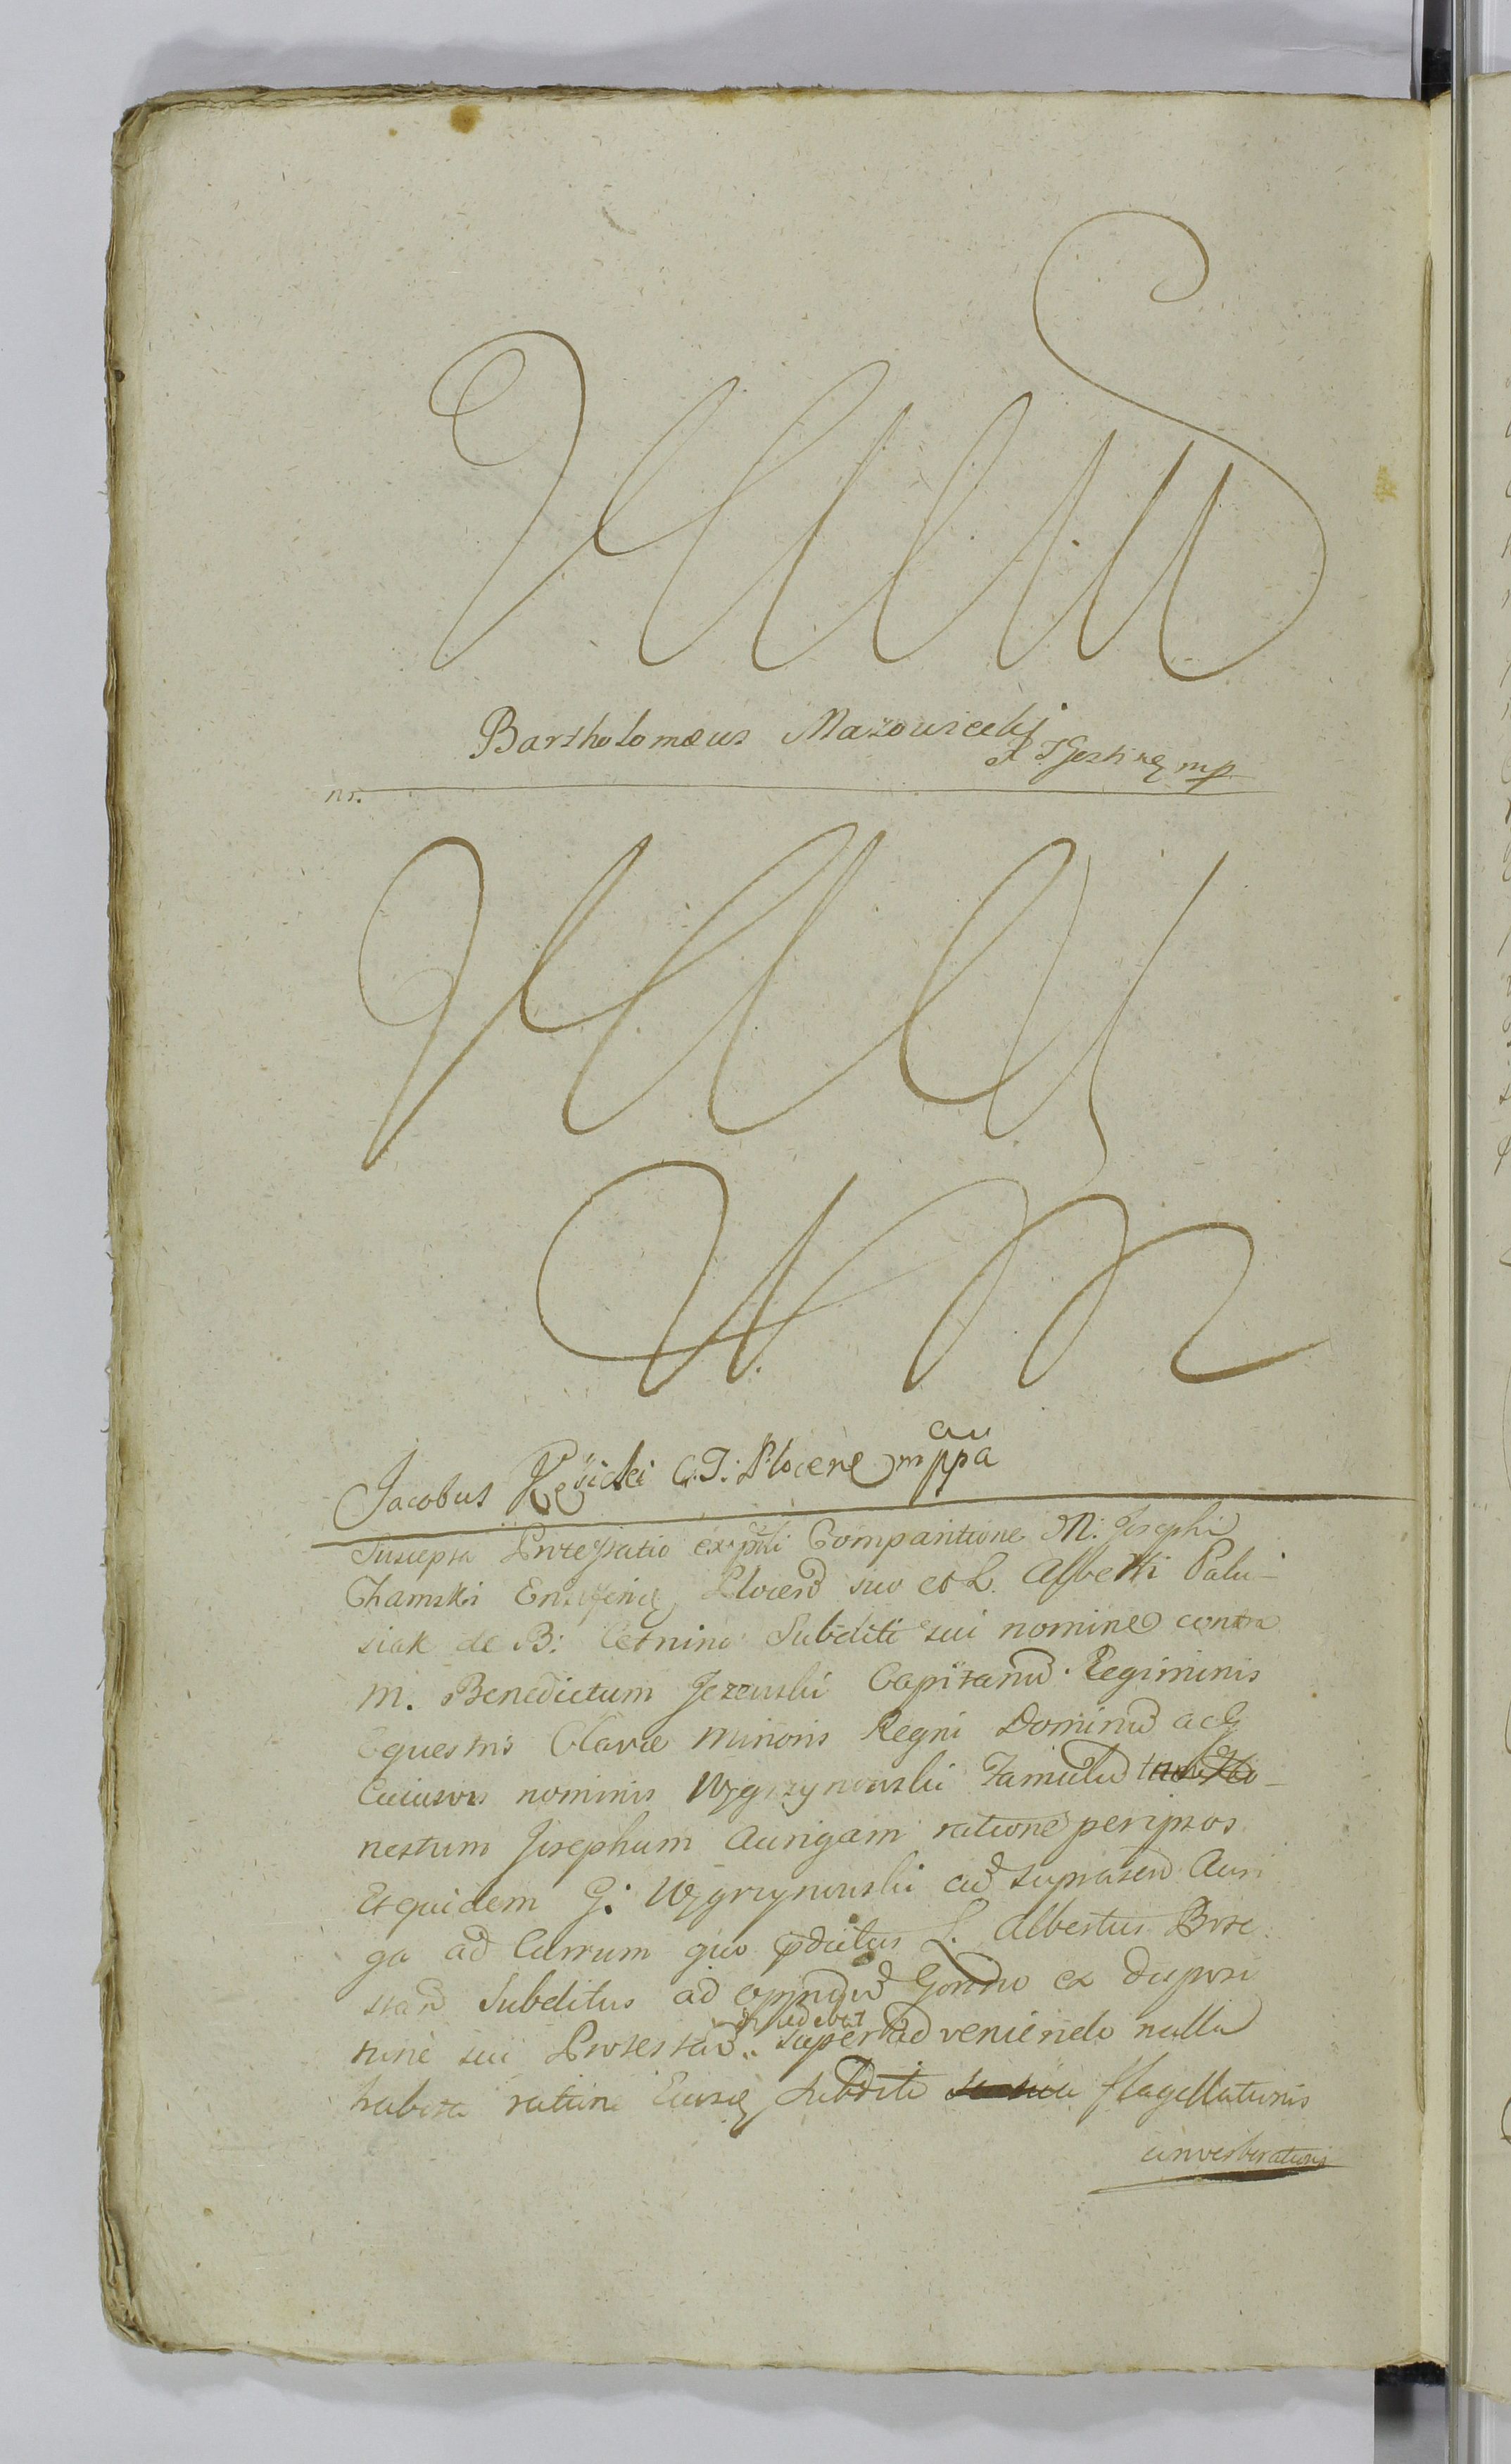 Bartholomæus Mazowiecki
mp
nr.
Jacobus C: T: Plocens mppa
Suscepta Protestatio ex pssti Comparitione M: Josephi
Chamski Ensiferidę Plocen suo et L. Alberti Palu-
siak de B: Cetnino Subditi sui nomine contra
M. Benedictum Jezewski Capitanū Regiminis
Equestris Clavæ Minoris Regni Dominū ac G
Cuiusvis nominis Węgrzynowski Famulū
nestum Josephum Aurigam ratione per ipsos
Et quidem G: Węgrzynowski cū suprascr Auri
ga ad Currum quo pdictus L. Albertus Prote
stan Subditus ad oppidū Gorzno ex disposi
tione sui Protestan. superadveniendo nulla
habita ratione Eiusdę Subditi flagellationis
converberationis